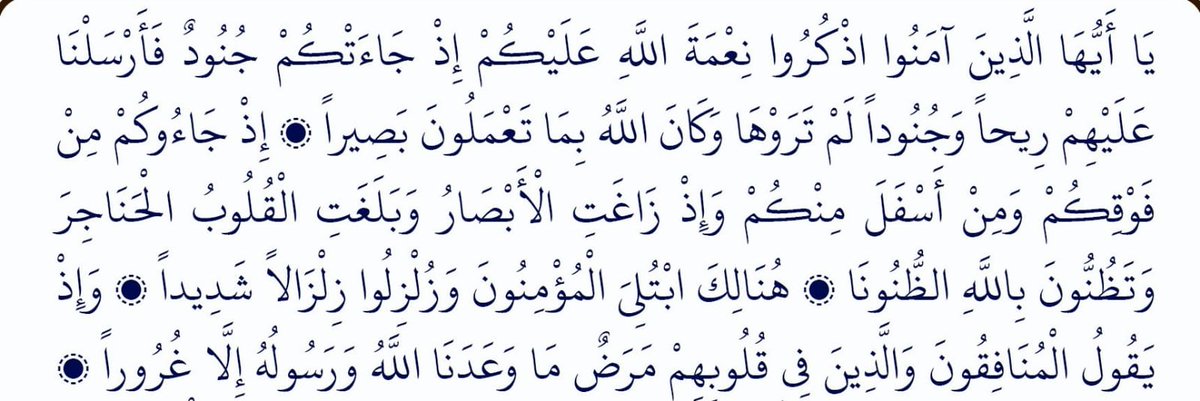 يَا أَيُّهَا الَّذِينَ آمَنُوا اذْكُرُوا نِعْمَةَ اللَّهِ عَلَيْكُمْ إِذْ جَاءَتْكُمْ جُنُودٌ فَأَرْسَلْنَا
عَلَيْهِمْ رِيحاً وَجُنُوداً لَمْ تَرَوْهَا وَكَانَ اللَّهُ بِمَا تَعْمَلُونَ بَصِيراً ۝ إِذْ جَاءُوكُمْ مِنْ
فَوْقِكُمْ وَمِنْ أَسْفَلَ مِنْكُمْ وَإِذْ زَاغَتِ الْأَبْصَارُ وَبَلَغَتِ الْقُلُوبُ الْحَنَاجِرَ
وَتَظُنُّونَ بِاللَّهِ الظُّنُونَا ۝ هُنَالِكَ ابْتُلِيَ الْمُؤْمِنُونَ وَزُلْزِلُوا زِلْزَالاً شَدِيداً ۝ وَإِذْ
يَقُولُ الْمُنَافِقُونَ وَالَّذِينَ فِي قُلُوبِهِمْ مَرَضٌ مَا وَعَدَنَا اللَّهُ وَرَسُولُهُ إِلَّا غُرُوراً ۝